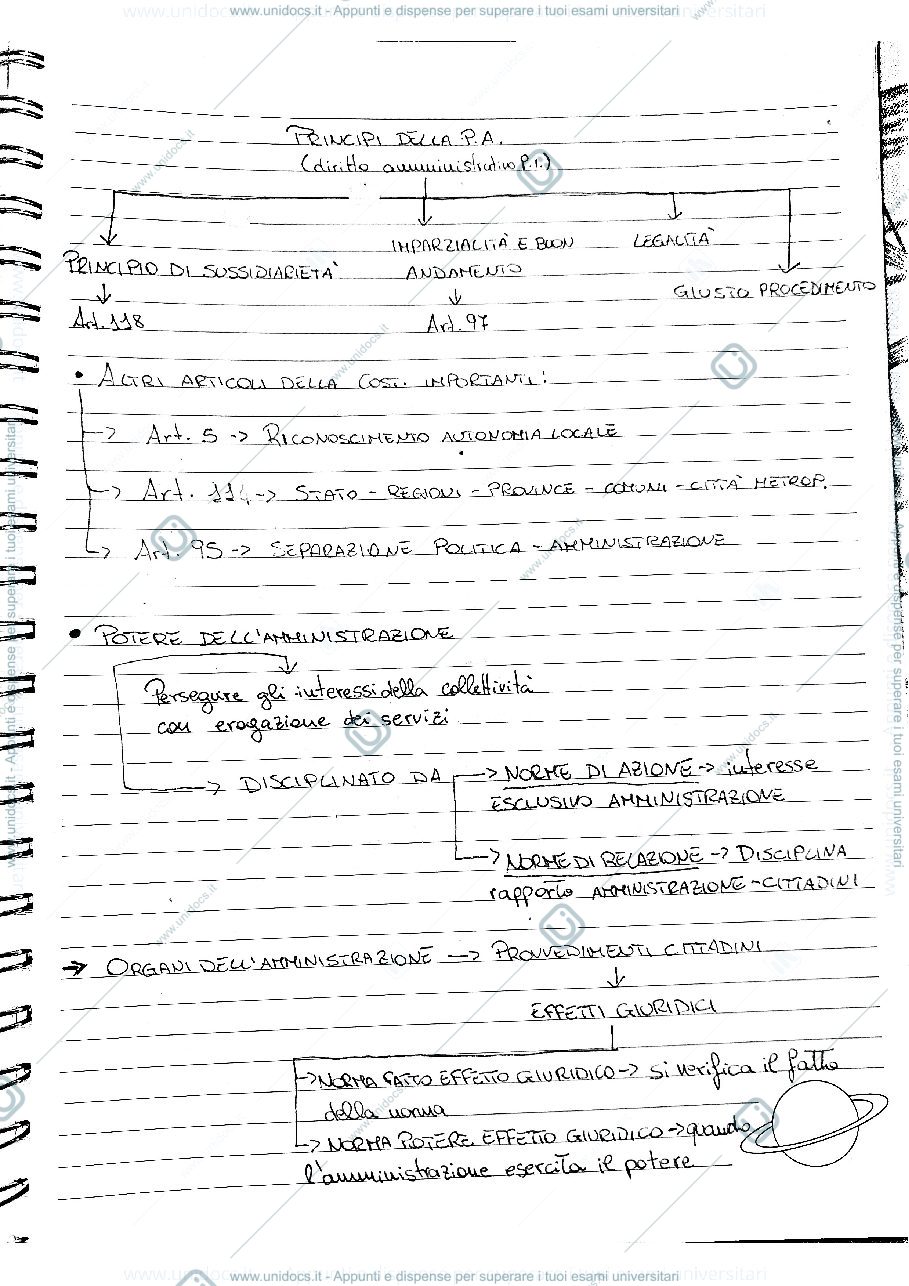 www.unidocs.it - Appunti e dispense per superare i tuoi esami universitari
PRINCIPI DELLA P.A.
(diritto amministrativo P.1.)
PRINCIPIO DI SUSSIDIARIETA'
IMPARZIALITÀ E BUON
ANDAMENTO
LEGALITÀ
GIUSTO PROCEDIMENTO
Art. 118
Art. 97
• ALTRI ARTICOLI DELLA COST. IMPORTANTI:
-> Art. 5 -> RICONOSCIMENTO AUTONOMIA LOCALE
-> Art. 114 -> STATO - REGIONI - PROVINCE - COMUNI - CITTÀ METROP.
-> Art. 95 -> SEPARAZIONE POLITICA - AMMINISTRAZIONE
• POTERE DELL'AMMINISTRAZIONE
Persegure gli interessi della collettività
con erogazione dei servizi
-> DISCIPLINATO DA
-> NORME DI AZIONE -> interesse
ESCLUSIVO AMMINISTRAZIONE
-> NORME DI RELAZIONE -> DISCIPLINA
rapporto AMMINISTRAZIONE - CITTADINI
-> ORGANI DELL'AMMINISTRAZIONE -> PROVVEDIMENTI CITTADINI
EFFETTI GIURIDICI
-> NORMA FATTO EFFETTO GIURIDICO -> si verifica il fatto
della norma
-> NORMA POTERE EFFETTO GIURIDICO -> quando
l'amministrazione esercita il potere
www.unidocs.it - Appunti e dispense per superare i tuoi esami universitari